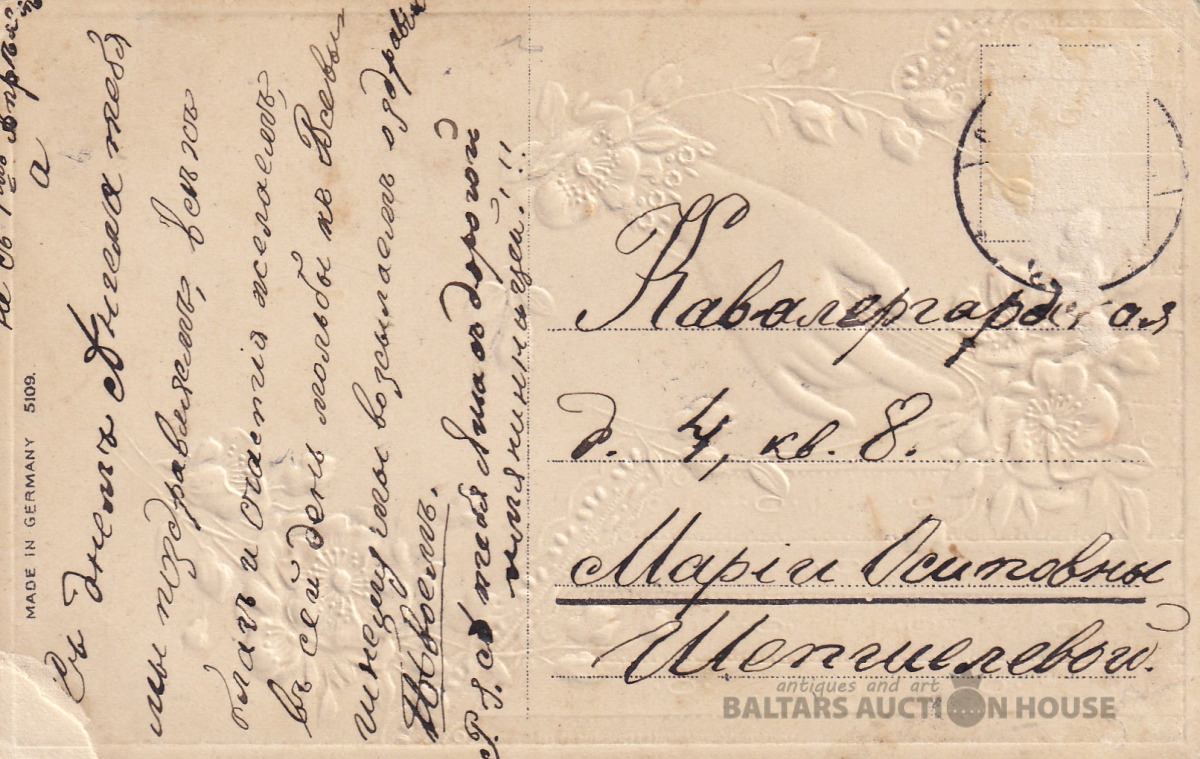 Съ днемъ Ангела тебя
мы поздравляемъ, всѣхъ
благъ и счастія желаемъ,
въ сей день мольбы ко Всевыш
шнему мы возсылаемъ о здравіи
твоемъ.
P. S. тебя Яша дорогой
имянинницей!!!
а
MADE IN GERMANY 5109.
Кавалергардская
д. 4, кв. 8.
Маріи Осиповны
Шепшелевой.
antiques and art
BALTARS AUCTION HOUSE